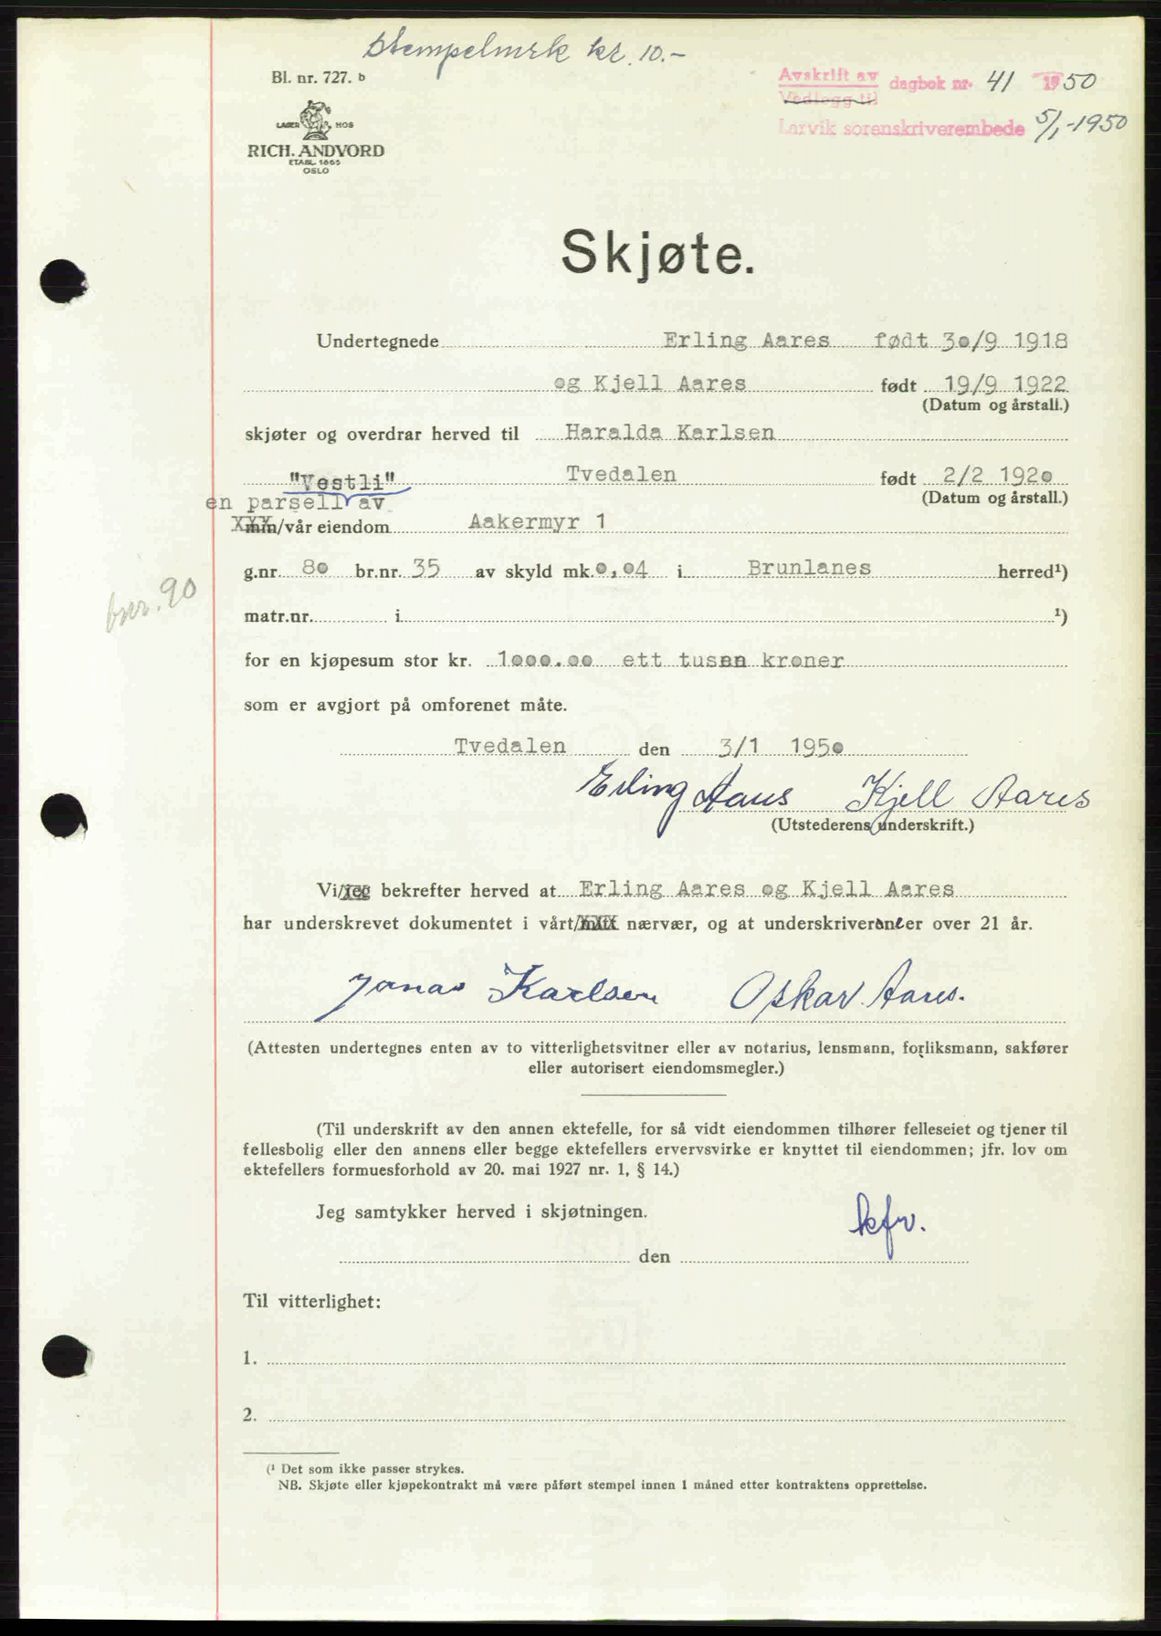 Stempelmrk kr. 10.-
Bl. nr. 727. b
Avskrift av dagbok nr. 41 1950
Vedlegg til
Larvik sorenskriverembede 5/1-1950
LAGER HOS
RICH. ANDVORD
ETABL. 1865
OSLO
Skjøte.
Undertegnede Erling Aares født 30/9 1918
og Kjell Aares født 19/9 1922
(Datum og årstall.)
skjøter og overdrar herved til Haralda Karlsen
"Vestli" Tvedalen født 2/2 1920
(Datum og årstall.)
en parsell av
min/vår eiendom Aakermyr 1
g.nr. 80 br.nr. 35 av skyld mk. 0,04 i Brunlanes herred¹)
bnr. 90
matr.nr. i ¹)
for en kjøpesum stor kr. 1000.00 ett tusen kroner
som er avgjort på omforenet måte.
Tvedalen den 3/1 1950
Erling Aares Kjell Aares
(Utstederens underskrift.)
Vi/jeg bekrefter herved at Erling Aares og Kjell Aares
har underskrevet dokumentet i vårt/mitt nærvær, og at underskriverne er over 21 år.
Jonas Karlsen Oskar Aares.
(Attesten undertegnes enten av to vitterlighetsvitner eller av notarius, lensmann, forliksmann, sakfører
eller autorisert eiendomsmegler.)
(Til underskrift av den annen ektefelle, for så vidt eiendommen tilhører felleseiet og tjener til
fellesbolig eller den annens eller begge ektefellers ervervsvirke er knyttet til eiendommen; jfr. lov om
ektefellers formuesforhold av 20. mai 1927 nr. 1, § 14.)
Jeg samtykker herved i skjøtningen.
kfr.
den
Til vitterlighet:
1.
2.
(¹ Det som ikke passer strykes.
NB. Skjøte eller kjøpekontrakt må være påført stempel innen 1 måned etter kontraktens opprettelse.